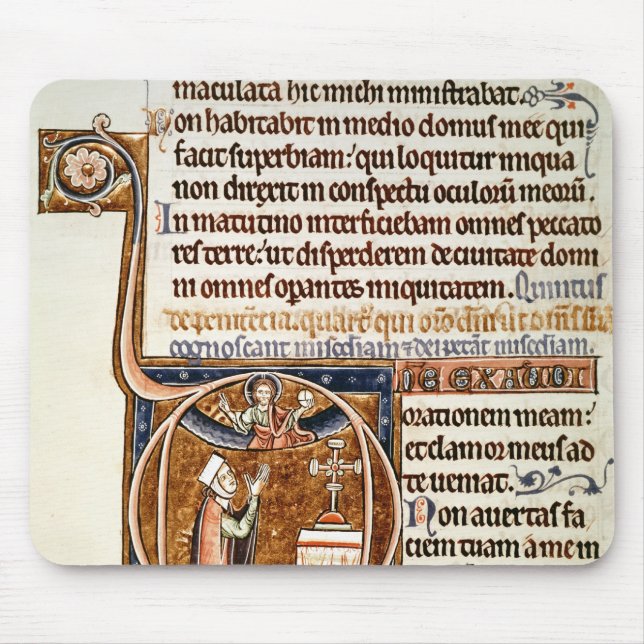 maculata hic michi ministrabat.
Non habitabit in medio domus mee qui
facit superbiam: qui loquitur iniqua
non direxit in conspectu oculorū meorū.
In matutino interficiebam omnes peccato
res terre: ut disperderem de ciuitate domi
ni omnes opantes iniquitatem. Quintus
de penitētia. quarto qui
cognoscant &
ne exaudi
orationem meam:
et clamor meus ad
te ueniat.
Non auertas fa
ciem tuam a me in